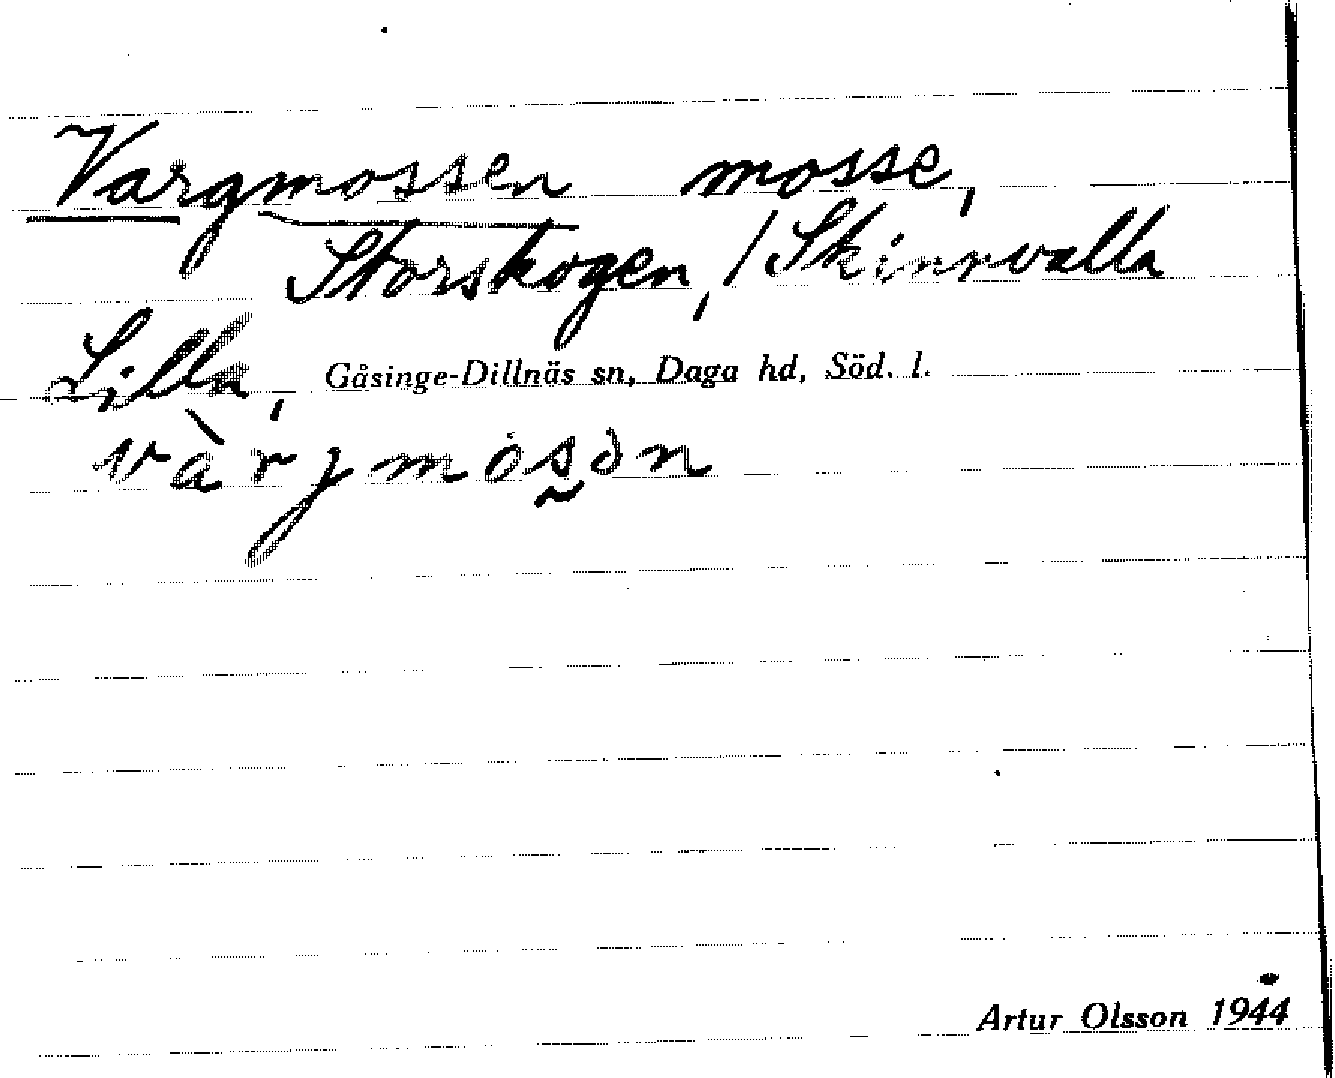 Vargmossen mosse,
Storskogen, /Skinnvalla
Lilla, Gåsinge-Dillnäs sn, Daga hd, Söd. l.
Artur Olsson 1944